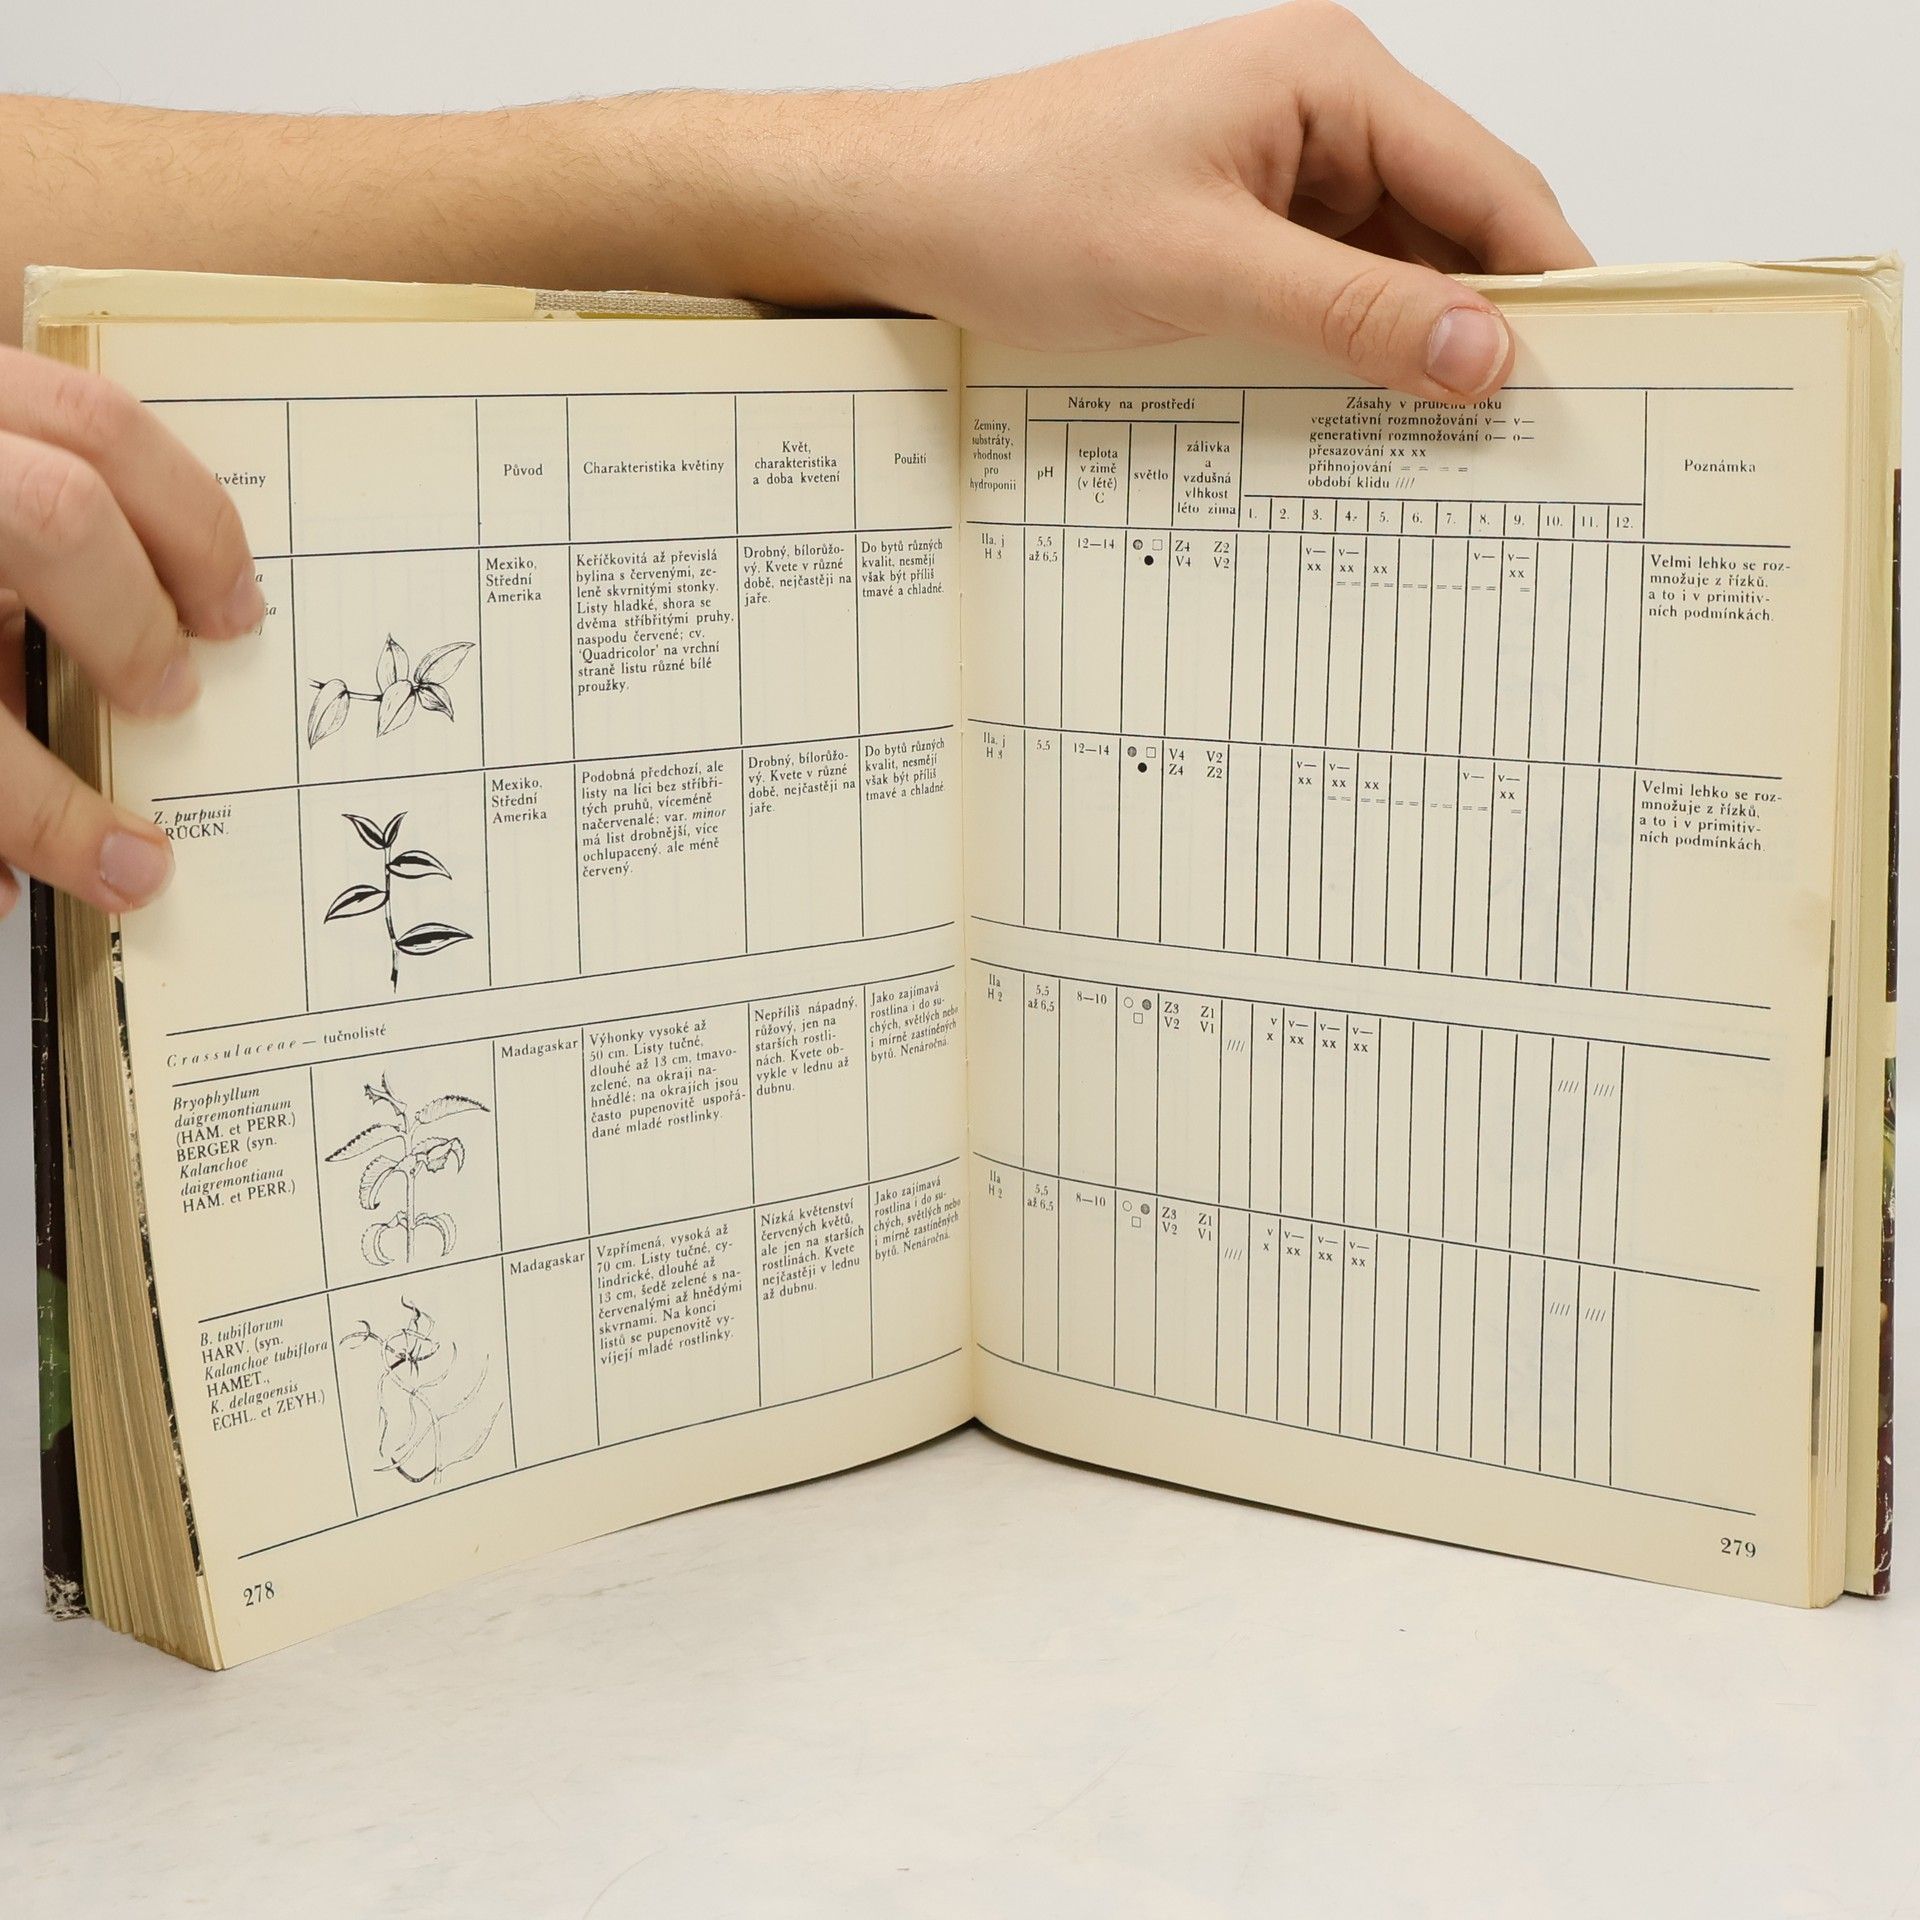 květiny
Původ
Charakteristika květiny
Květ,
charakteristika
a doba kvetení
Použití
Mexiko,
Střední
Amerika
Keříčkovitá až převislá
bylina s červenými, ze-
leně skvrnitými stonky.
Listy hladké, shora se
dvěma stříbřitými pruhy,
naspodu červené; cv.
'Quadricolor' na vrchní
straně listu různé bílé
proužky.
Drobný, bílorůžo-
vý. Kvete v různé
době, nejčastěji na
jaře.
Do bytů různých
kvalit, nesmějí
však být příliš
tmavé a chladné.
Z. purpusii
BRÜCKN.
Mexiko,
Střední
Amerika
Podobná předchozí, ale
listy na líci bez stříbři-
tých pruhů, víceméně
načervenalé; var. minor
má list drobnější, více
ochlupacený, ale méně
červený.
Drobný, bílorůžo-
vý. Kvete v různé
době, nejčastěji na
jaře.
Do bytů různých
kvalit, nesmějí
však být příliš
tmavé a chladné.
Crassulaceae — tučnolisté
Bryophyllum
daigremontianum
(HAM. et PERR.)
BERGER (syn.
Kalanchoe
daigremontiana
HAM. et PERR.)
Madagaskar
Výhonky vysoké až
50 cm. Listy tučné,
dlouhé až 13 cm, tmavo-
zelené, na okraji na-
hnědlé; na okrajích jsou
často pupenovitě uspořá-
dané mladé rostlinky.
Nepříliš nápadný,
růžový, jen na
starších rostli-
nách. Kvete ob-
vykle v lednu až
dubnu.
Jako zajímavá
rostlina i do su-
chých, světlých nebo
i mírně zastíněných
bytů. Nenáročná.
B. tubiflorum
HARV. (syn.
Kalanchoe tubiflora
HAMET.,
K. delagoensis
ECHL. et ZEYH.)
Madagaskar
Vzpřímená, vysoká až
70 cm. Listy tučné, cy-
lindrické, dlouhé až
13 cm, šedě zelené s na-
červenalými až hnědými
skvrnami. Na konci
listů se pupenovitě vy-
víjejí mladé rostlinky.
Nízká květenství
červených květů,
ale jen na starších
rostlinách. Kvete
nejčastěji v lednu
až dubnu.
Jako zajímavá
rostlina i do su-
chých, světlých nebo
i mírně zastíněných
bytů. Nenáročná.
278
Zeminy,
substráty,
vhodnost
pro
hydroponii
Nároky na prostředí
pH
teplota
v zimě
(v létě)
C
světlo
zálivka
a
vzdušná
vlhkost
léto zima
Zásahy v průběhu roku
vegetativní rozmnožování v— v—
generativní rozmnožování o— o—
přesazování xx xx
přihnojování = = = =
období klidu ////
1. 2. 3. 4. 5. 6. 7. 8. 9. 10. 11. 12.
Poznámka
IIa, j
H 3
5,5
až 6,5
12—14
Z4 Z2
V4 V2
v— v— v— v—
xx xx xx xx
= = = = = = =
Velmi lehko se roz-
množuje z řízků,
a to i v primitiv-
ních podmínkách.
IIa, j
H 3
5,5
12—14
V4 V2
Z4 Z2
v— v— v— v—
xx xx xx xx
= = = = = =
Velmi lehko se roz-
množuje z řízků,
a to i v primitiv-
ních podmínkách.
IIa
H 2
5,5
až 6,5
8—10
Z3 Z1
V2 V1
//// v v— v— v—
x xx xx xx
//// ////
IIa
H 2
5,5
až 6,5
8—10
Z3 Z1
V2 V1
//// v v— v— v—
x xx xx xx
//// ////
279